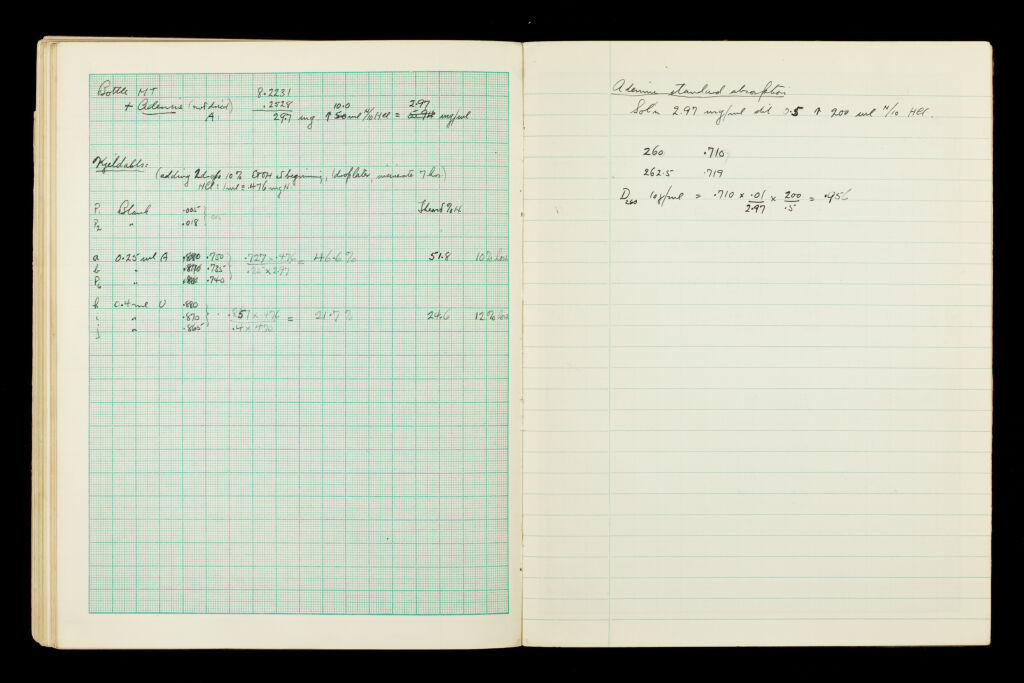 Bottle MT 8.2231
+ Adenine (not dried) .2528 10.0 2.97
A. 29.7 mg ↑ 50 ml N/10 HCl = mg/ml
Kjeldahls:
(adding 2 drops 10% at beginning, 1 drop later, incinerate 7 hrs)
HCl: 1 ml = .476 mg N
P1 Blank .005
P2 " .018
Theoret % N
a 0.25 ml A .750 .727 × .476 = 46.6% 51.8 10% loss
b " .735 .25 × 2.97
P6 " .740
h 0.4 ml U .880
i " .870 .857 × .476 = 21.7% 24.6 12% loss
j " .865 .4 ×
Adenine standard absorption
Soln 2.97 mg/ml dil 0.5 ↑ 200 ml N/10 HCl.
260 .710
262.5 .719
D260 10γ/ml = .710 × .01/2.97 × 200/.5 = .956